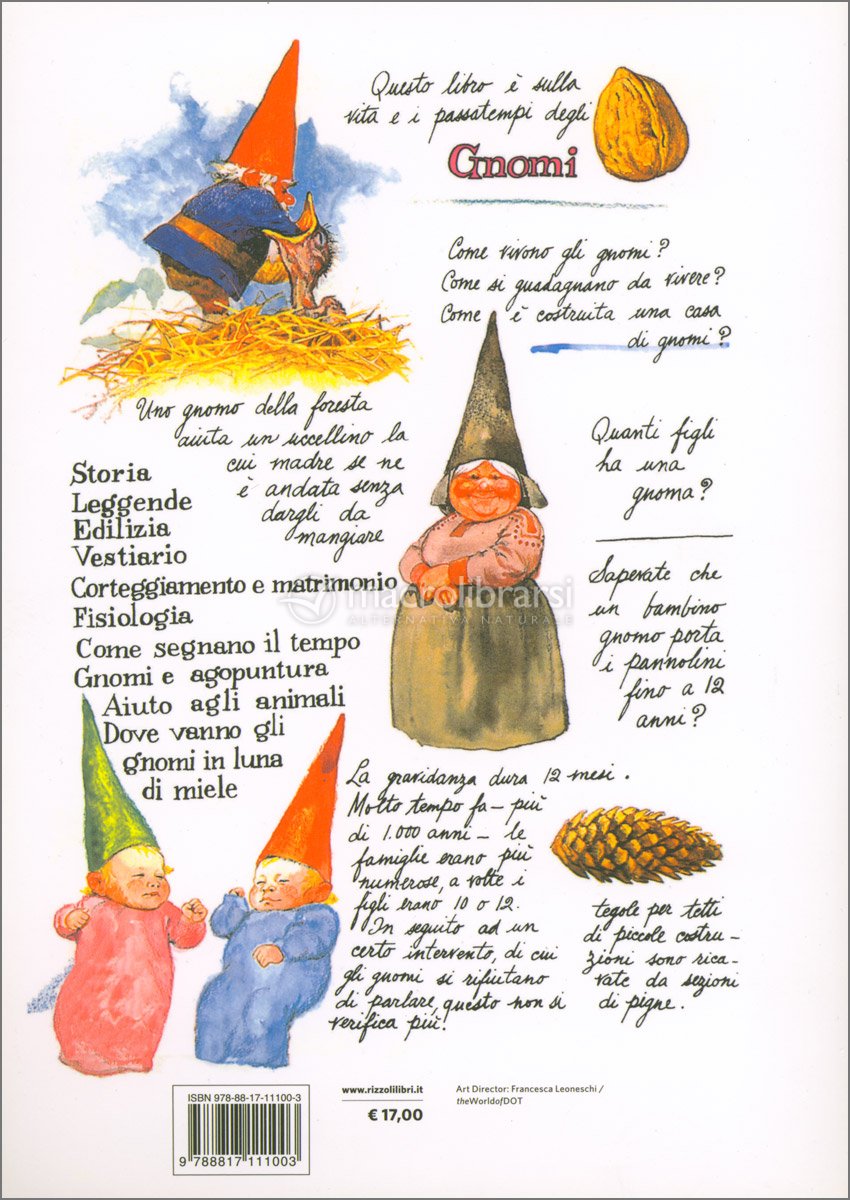 Questo libro è sulla
vita e i passatempi degli
Gnomi
Come vivono gli gnomi?
Come si guadagnano da vivere?
Come è costruita una casa
di gnomi?
Uno gnomo della foresta
aiuta un uccellino la
cui madre se ne
è andata senza
dargli da
mangiare
Quanti figli
ha una
gnoma?
Storia
Leggende
Edilizia
Vestiario
Corteggiamento e matrimonio
Fisiologia
Come segnano il tempo
Gnomi e agopuntura
Aiuto agli animali
Dove vanno gli
gnomi in luna
di miele
macrolibrarsi
ALTERNATIVA NATURALE
Sapevate che
un bambino
gnomo porta
i pannolini
fino a 12
anni?
La gravidanza dura 12 mesi.
Molto tempo fa - più
di 1.000 anni - le
famiglie erano più
numerose, a volte i
figli erano 10 o 12.
In seguito ad un
certo intervento, di cui
gli gnomi si rifiutano
di parlare, questo non si
verifica più!
tegole per tetti
di piccole costru-
zioni sono rica-
vate da sezioni
di pigne.
ISBN 978-88-17-11100-3
9 788817 111003
www.rizzolilibri.it
€ 17,00
Art Director: Francesca Leoneschi /
theWorldofDOT